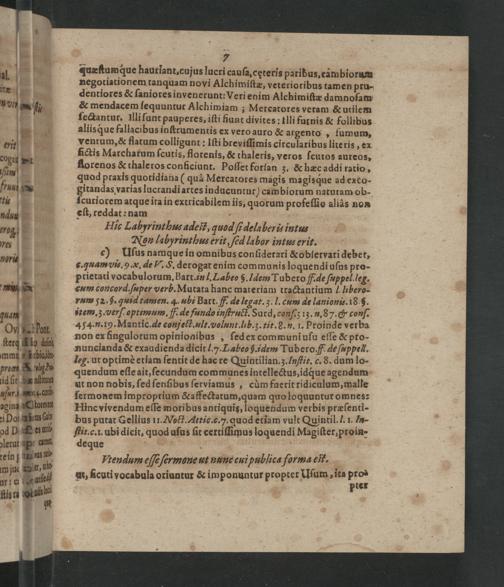 7
quæstumque hauriant, cujus lucri causa, cęteris paribus, cambiorum
negotiationem tanquam novi Alchimistæ, veterioribus tamen pru-
dentiores & saniores invenerunt: Veri enim Alchimistæ damnosam
& mendacem sequuntur Alchimiam; Mercatores veram & utilem
sectantur. Illi sunt pauperes, isti sunt divites: Illi furnis & follibus
aliisque fallacibus instrumentis ex vero auro & argento, fumum,
ventum, & flatum colligunt: Isti brevissimis circularibus literis, ex
fictis Marcharum scutis, florenis, & thaleris, veros scutos aureos,
florenos & thaleros conficiunt. Posset forsan 3. & hæc addi ratio,
quod praxis quotidiana (quâ Mercatores magis magisque ad exco-
gitandas varias lucrandi artes inducuntur) cambiorum naturam ob-
scuriorem atque ita in extricabilem iis, quorum professio aliàs non
est, reddat: nam
Hic Labyrinthus adest, quod si delaberis intus
Non labyrinthus erit, sed labor intus erit.
c) Usus namque in omnibus considerari & observari debet,
c. quam vis. 9. x. de V. S. derogat enim communis loquendi usus pro-
prietati vocabulorum, Batt. in l. Labeo §. Idem Tubero ff. de suppel. leg.
cum concord. super verb. Mutata hanc materiam tractantium l. libero-
rum 52. §. quid tamen. 4. ubi Batt. ff. de legat. 3. l. cum de lanionis. 18 §.
item, 3. vers. optimum, ff. de fundo instruct. Surd, cons. 313. n, 87. & cons.
454. n. 19. Mantic. de conject. ult. volunt. lib. 3. tit. 8. n. 1. Proinde verba
non ex singulorum opinionibus, sed ex communi usu esse & pro-
nuncianda & exaudienda dicit l. 7. Labeo §. idem Tubero. ff. de suppell.
leg. ut optimè etiam sentit de hac re Quintilian. 3. Instit. c. 8. dum lo-
quendum esse ait, secundum communes intellectus, idque agendum
ut non nobis, sed sensibus serviamus, cùm faerit ridiculum, malle
sermonem improprium & affectatum, quam quo loquuntur omnes:
Hinc vivendum esse moribus antiquis, loquendum verbis præsenti-
bus putat Gellius 11. Noct. Attic. c. 7. quod etiam vult Quintil. l. 1. In-
stit. c. 1. ubi dicit, quod usus sit certissimus loquendi Magister, proin-
deque
Utendum esse sermone ut nunc cui publica forma est.
ut, sicuti vocabula oriuntur & imponuntur propter Usum, ita pro-
pter